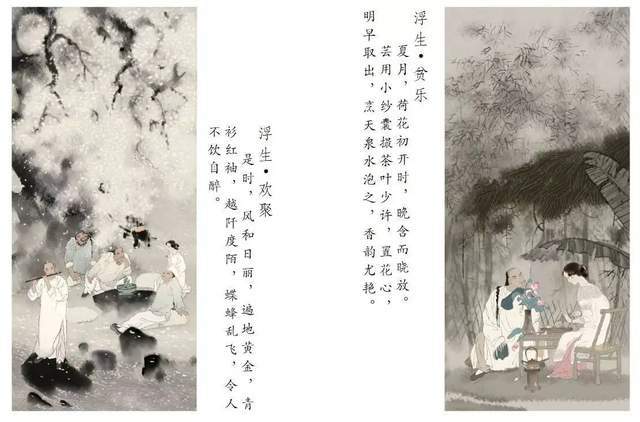 浮生·贫乐
夏月，荷花初开时，晚含而晓放。
芸用小纱囊撮茶叶少许，置花心，
明早取出，烹天泉水泡之，香韵尤艳。
浮生·欢聚
是时，风和日丽，遍地黄金，青
衫红袖，越阡度陌，蝶蜂乱飞，令人
不饮自醉。